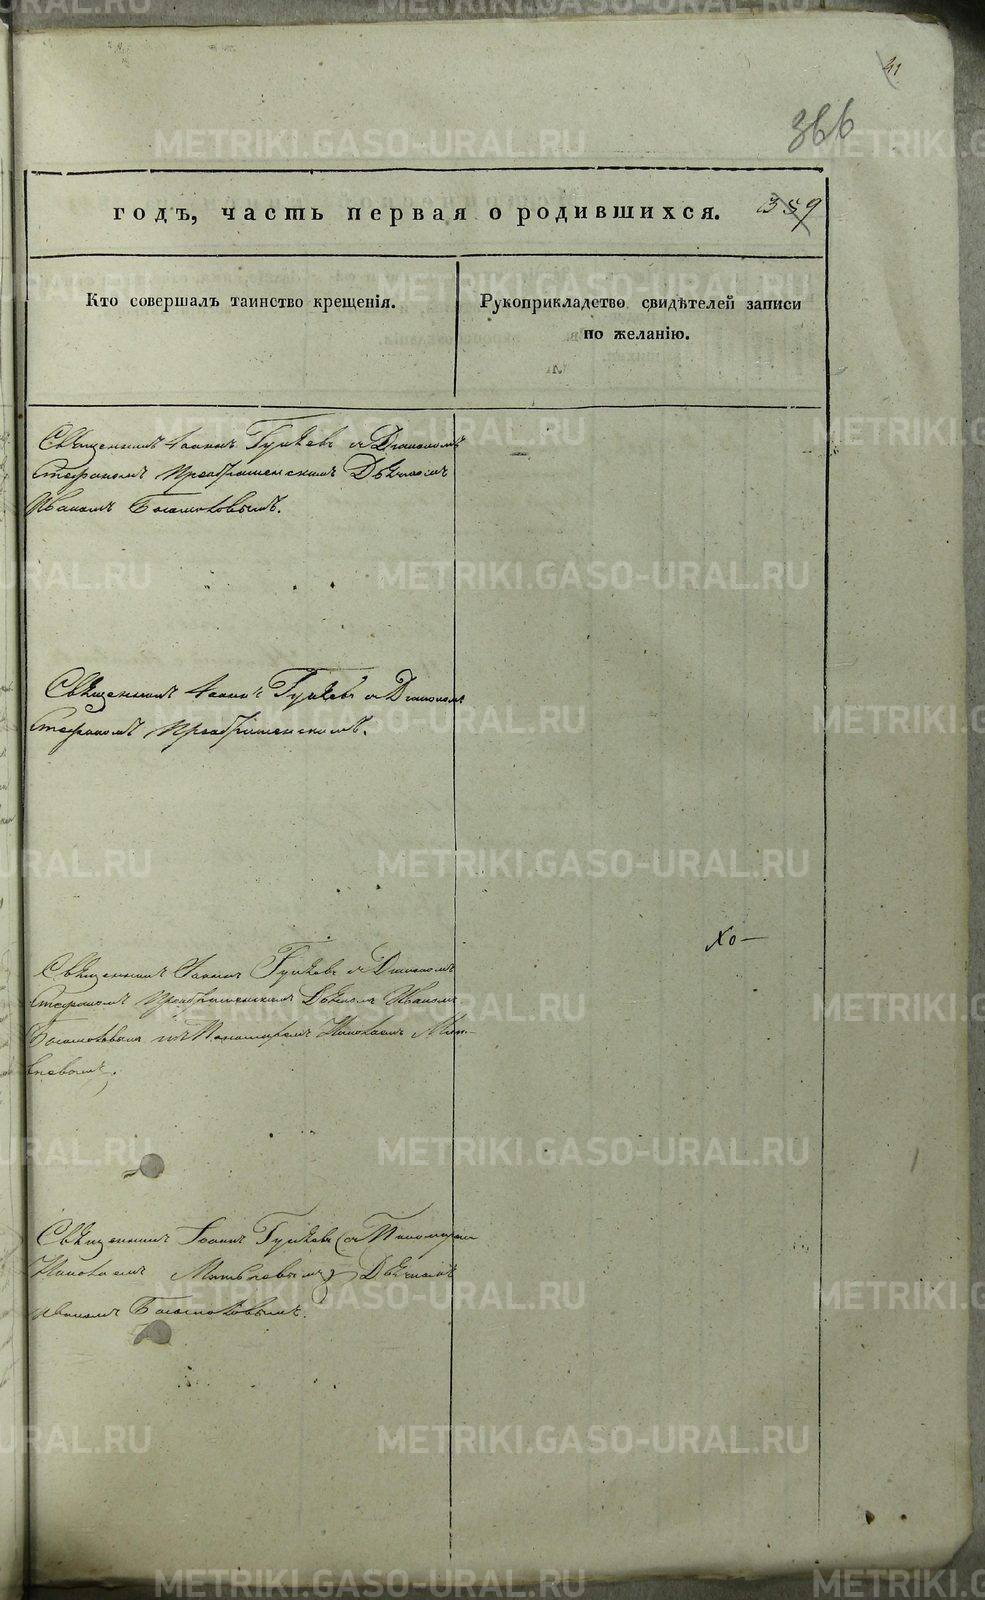 41
366
годъ, часть первая о родившихся. 359
Кто совершалъ таинство крещенія.
Рукоприкладство свидѣтелей записи
по желанію.
Священникъ Іоаннъ съ Діакономъ
Стефаномъ Преображенскимъ Дьячкомъ
Иваномъ Богомоловымъ.
Священникъ Іоаннъ съ Діакономъ
Стефаномъ Преображенскимъ.
Священникъ Іоаннъ съ Діакономъ
Стефаномъ Преображенскимъ Дьячкомъ Иваномъ
Богомоловымъ и Пономаремъ Николаемъ
Священникъ Іоаннъ съ Пономаремъ
Николаемъ Дьячкомъ
Иваномъ Богомоловымъ.
METRIKI.GASO-URAL.RU